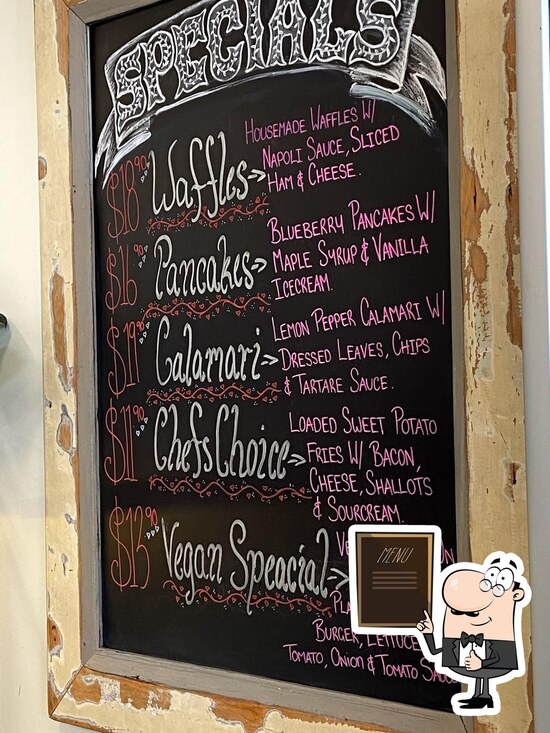 SPECIALS
$18.90 Waffles→
HOUSEMADE WAFFLES W/
NAPOLI SAUCE, SLICED
HAM & CHEESE.
$16.90 Pancakes→
BLUEBERRY PANCAKES W/
MAPLE SYRUP & VANILLA
ICECREAM.
$19.90 Calamari→
LEMON PEPPER CALAMARI W/
DRESSED LEAVES, CHIPS
& TARTARE SAUCE.
$11.90 Chefs Choice→
LOADED SWEET POTATO
FRIES W/ BACON,
CHEESE, SHALLOTS
& SOURCREAM.
Vegan Speacial→
BURGER, LETTUCE
TOMATO, ONION & TOMATO SAUCE
MENU